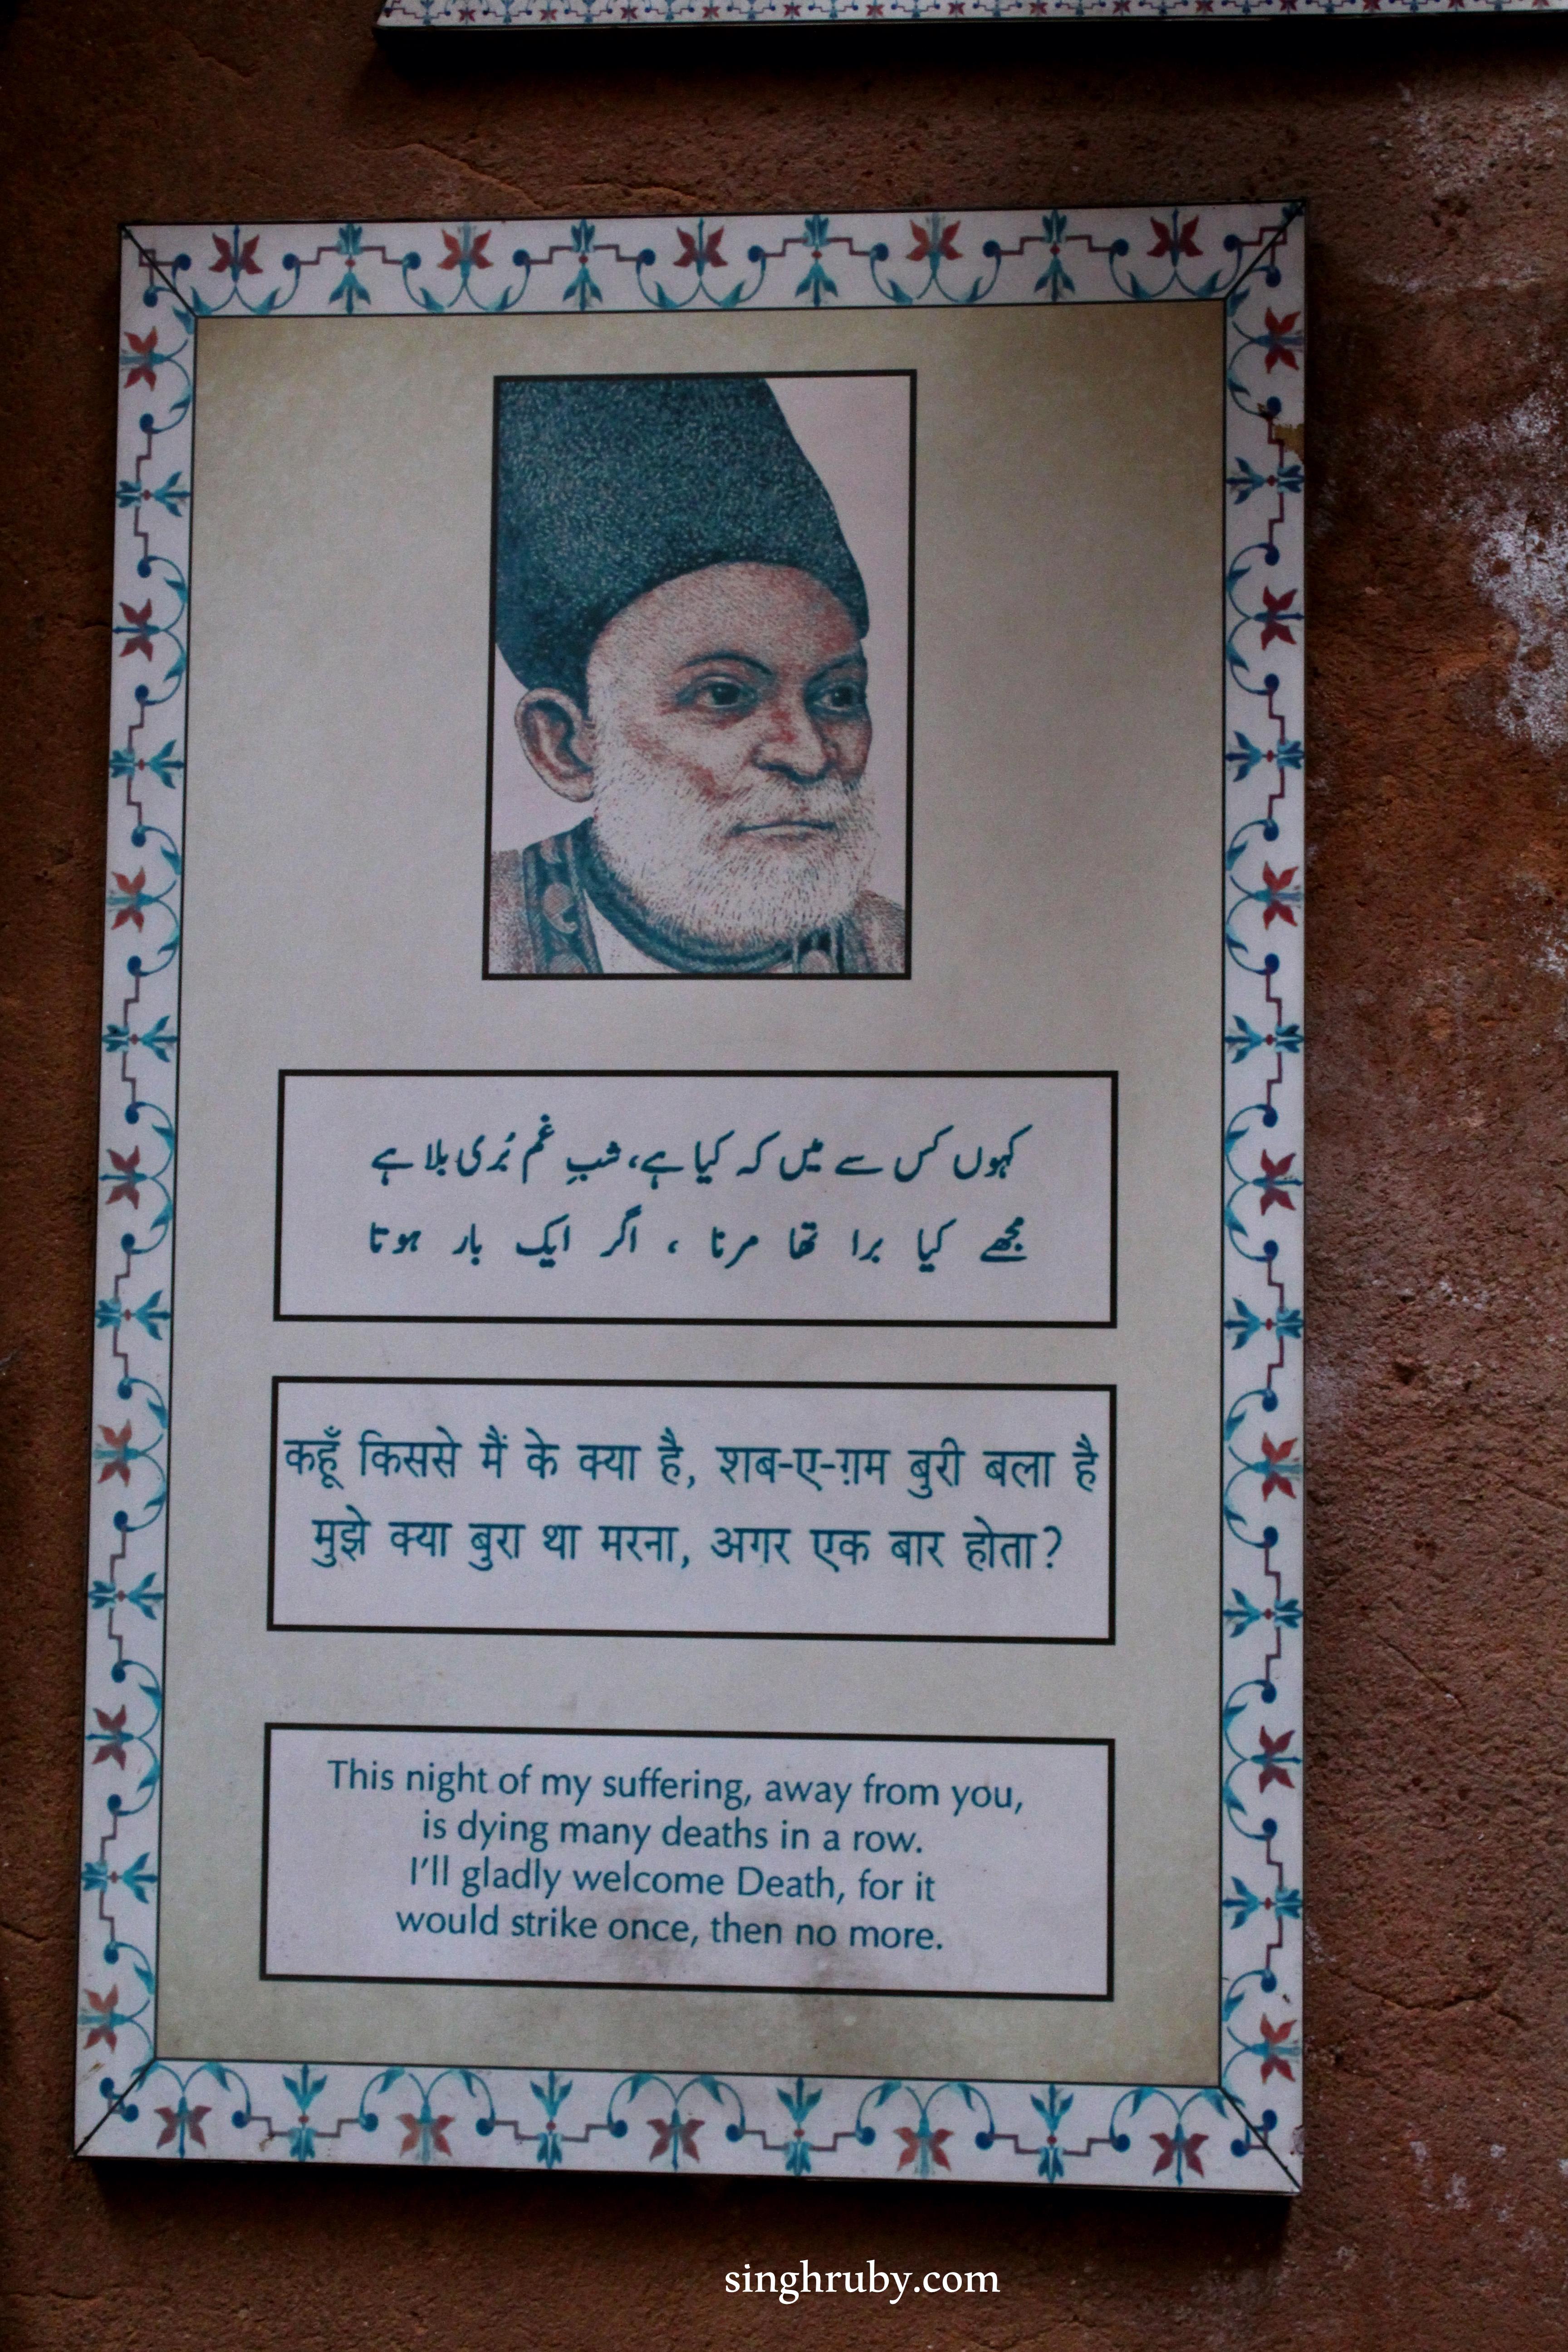 کہوں کس سے میں کہ کیا ہے، شبِ غم بُری بلا ہے
مجھے کیا برا تھا مرنا ، اگر ایک بار ہوتا
कहूँ किससे मैं के क्या है, शब-ए-ग़म बुरी बला है
मुझे क्या बुरा था मरना, अगर एक बार होता?
This night of my suffering, away from you,
is dying many deaths in a row.
I'll gladly welcome Death, for it
would strike once, then no more.
singhruby.com